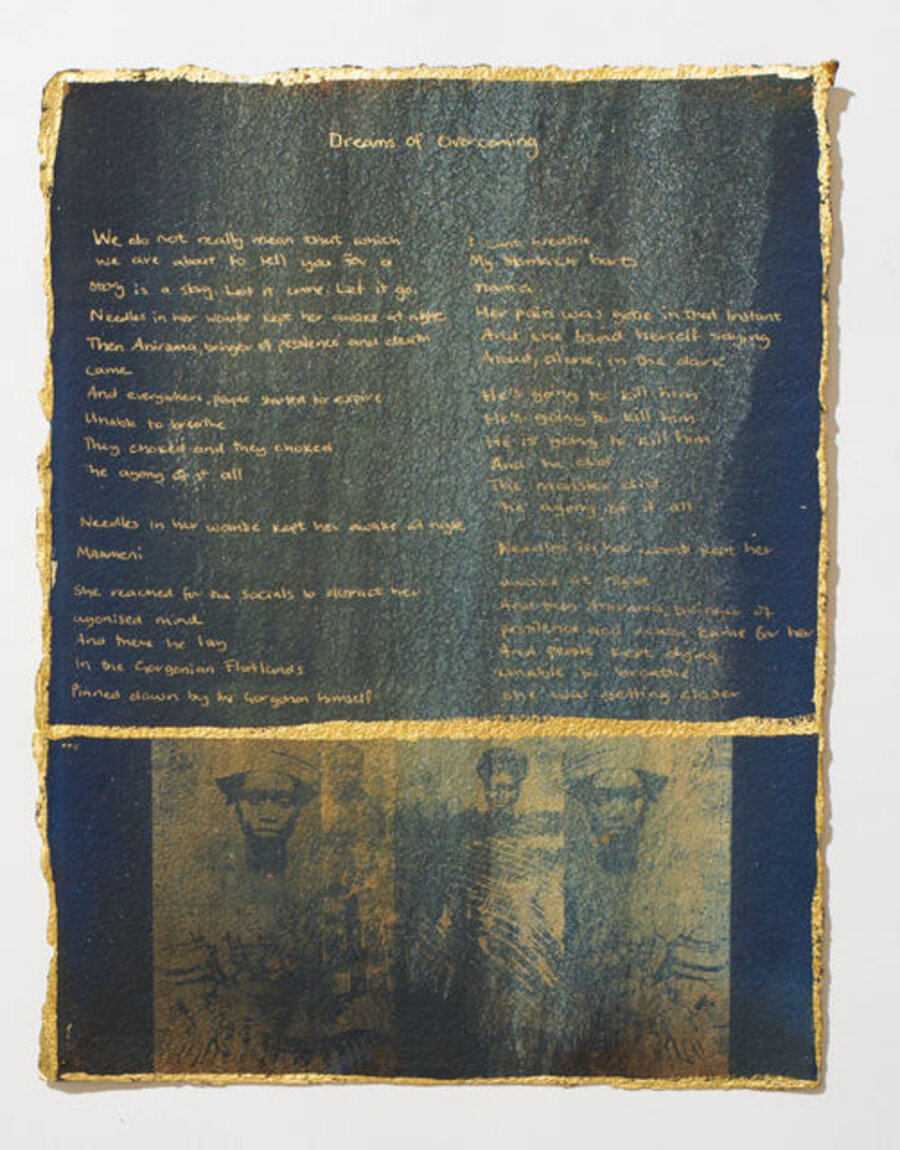 Dreams of Overcoming
We do not really mean that which
we are about to tell you for a
story is a story. Let it come. Let it go.
Needles in her wombe kept her awake at night
Then Anirama, bringer of pestilence and death
came
And everywhere, people started to expire
Unable to breathe
They choked and they choked
The agony of it all
Needles in her wombe kept her awake at night
Maameni
She reached for the socials to distract her
agonised mind
And there he lay
In the Gorgonian Flatlands
Pinned down by the Gorgonon himself
I cant breathe
My stomach hurts
mama
Her pain was gone in that instant
And she found herself saying
Aloud, alone, in the dark
He's going to kill him
He's going to kill him
He is going to kill him
And he did
The monster did
The agony of it all
Needles in her womb kept her
awake at night
And then Anirama, bringer of
pestilence and death came for her
And people kept dying
Unable to breathe
She was getting closer